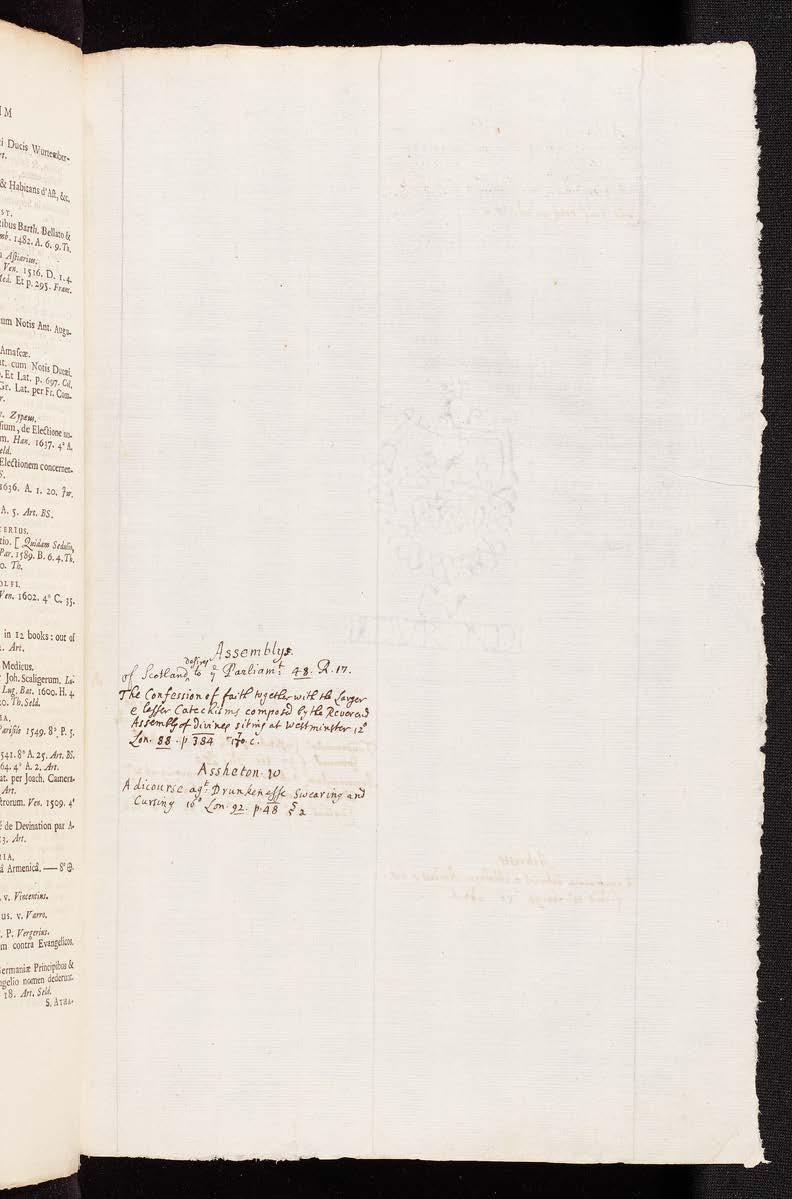 IM
i Ducis Wurtember-
rt.
& Habitans d'Ast, &c.
ST.
tibus Barth. Bellato &
mb. 1482. A. 6. 9. Th.
n Astiarium.
Ven. 1516. D. 1. 4.
Med. Et p. 295. Franc.
um Notis Ant. Augu-
Amascæ.
at. cum Notis Ducæi.
. Et Lat. p. 697. Col.
Gr. Lat. per Fr. Com-
r.
. Zypæus.
sium, de Electione un-
m. Han. 1637. 4° A.
eld.
Electionem concernen-
S.
1636. A. 1. 20. Jur.
A. 5. Art. BS.
TERIUS.
tio. [ Quidam Sedulio,
Par. 1589. B. 6. 4. Th.
o. Th.
OLFI.
Ven. 1602. 4° C. 35.
in 12 books: out of
. Art.
Medicus.
Joh. Scaligerum. Lu-
Lug. Bat. 1600. H. 4.
20. Th. Seld.
IA.
Parisiis 1549. 8°. P. 5.
541. 8° A. 25. Art. BS.
64. 4° A. 2. Art.
at. per Joach. Camera-
Art.
trorum. Ven. 1509. 4°
é de Devination par A-
3. Art.
IA.
à Armenicâ. — 8°
. v. Vincentius.
us. v. Varro.
. P. Vergerius.
m contra Evangelicos.
Germaniæ Principibus &
ngelio nomen dederunt.
18. Art. Seld.
S. ATHA-
Assemblys.
of Scotland desires to ye Parliamt. 48. R. 17.
The Confession of faith together with the Larger
& lesser Catechisms composed by the Reverend
Assembly of divines siting at Westminster 12°
Lon. 88. p 384
Assheton. W
A dicourse agt. Drunkenesse Swearing and
Cursing 16° Lon. 92. p. 48